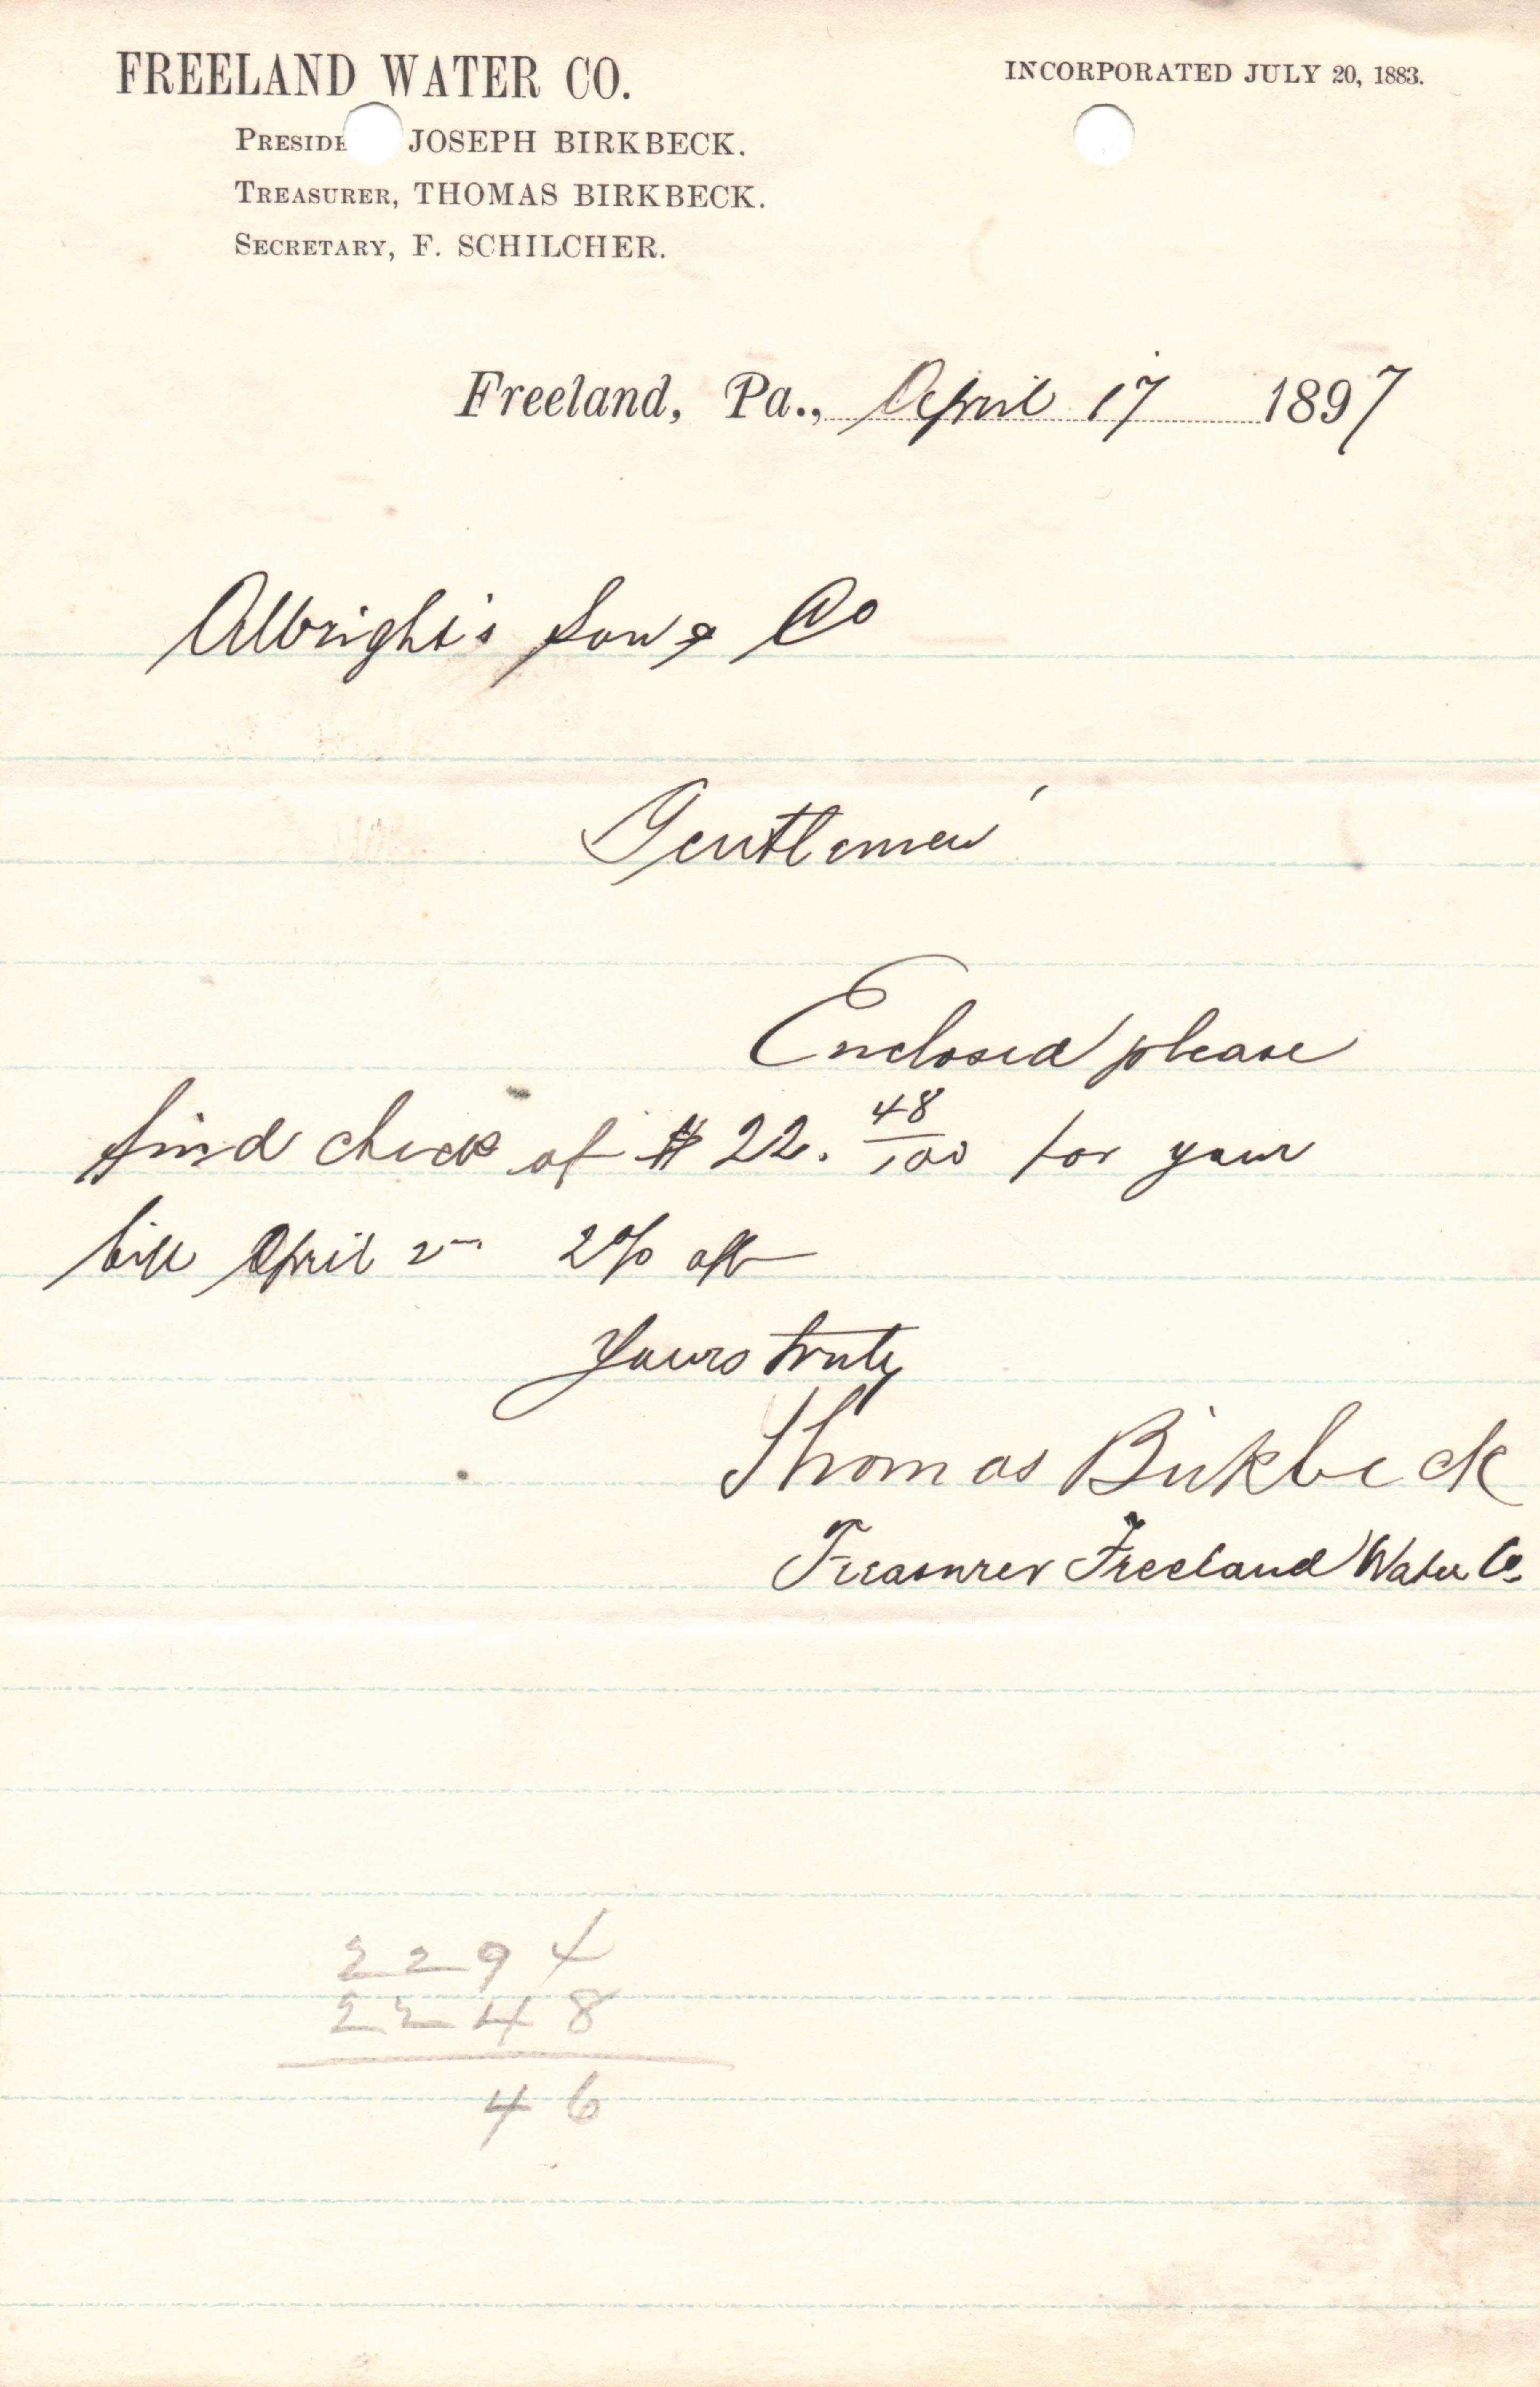 FREELAND WATER CO.
INCORPORATED JULY 20, 1883.
PRESIDE JOSEPH BIRKBECK.
TREASURER, THOMAS BIRKBECK.
SECRETARY, F. SCHILCHER.
Freeland, Pa., April 17 1897
Albright's Son & Co
Gentlemen
Enclosed please
find check of $ 22. 48/100 for your
bill April 2nd 2% off
Yours truly
Thomas Birkbeck
Treasurer Freeland Water Co.
2294
2248
46